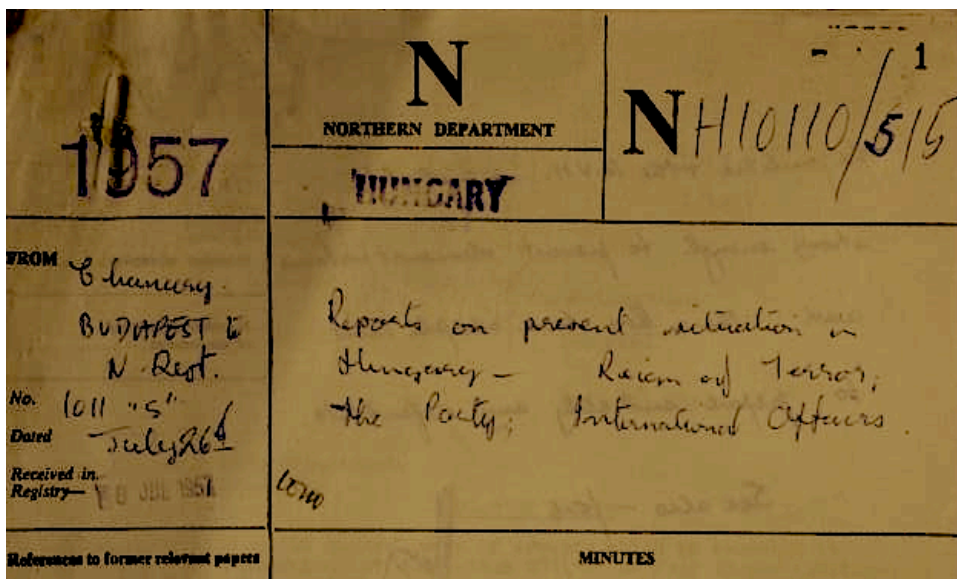 1957
N
NORTHERN DEPARTMENT
HUNGARY
1
NH10110/5/5
FROM
Chancery.
BUDAPEST to
N. Dept.
No. 1011 "S"
Dated July 26
Received in
Registry—
JUL 1957
Reports on present situation in
Hungary — Reign of Terror;
the Party; International Affairs.
References to former relevant papers
MINUTES
See also